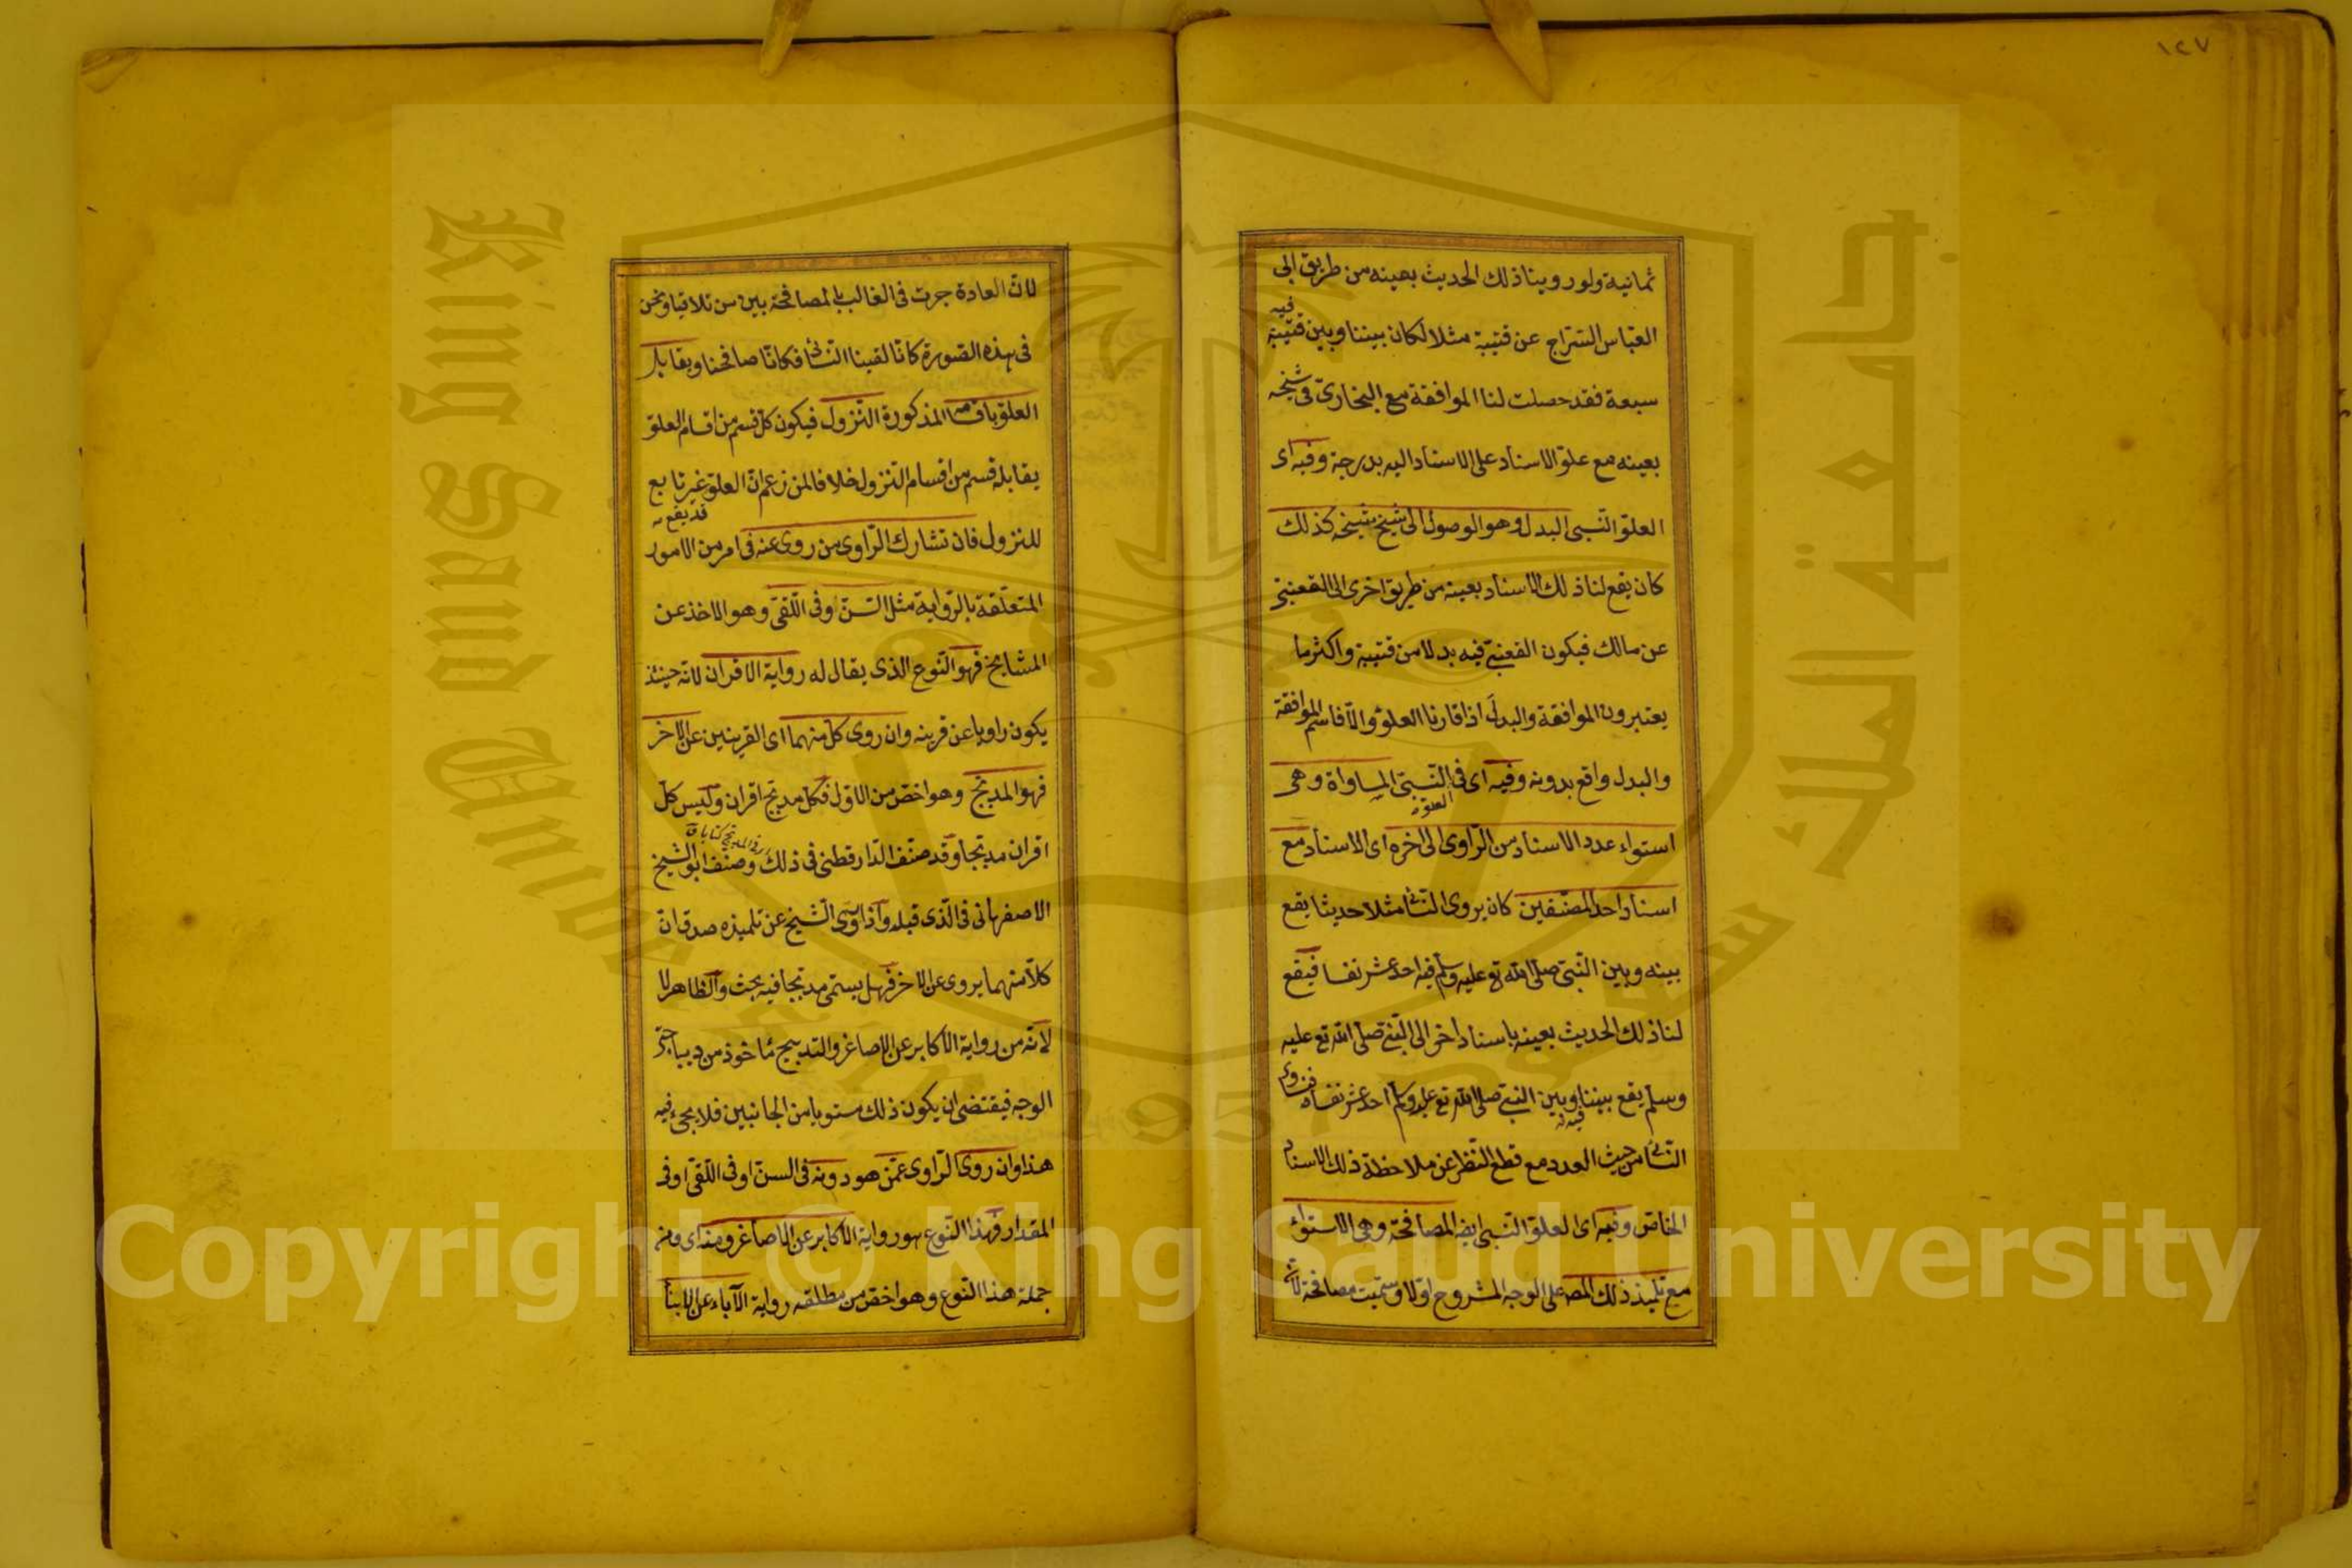 ١٢٧
ثمانية ولو روينا ذلك الحديث بعينه من طريق ابى
فيه
العباس السراج عن قتيبة مثلا لكان بيننا وبين قتيبة
سبعة فقد حصلت لنا الموافقة مع البخارى فى شيخه
بعينه مع علو الاسناد على الاسناد اليه بدرجة وفيه اى
العلو النسبى البدل وهو الوصول الى شيخ شيخه كذلك
كان يقع لنا ذلك الاسناد بعينه من طريق اخرى الى القعنبى
عن مالك فيكون القعنبى فيه بدلا من قتيبة واكثر ما
يعتبرون الموافقة والبدل اذا قارنا العلو والا فاسم الموافقة
والبدل واقع بدونه وفيه اى فى النسبى المساواة وهى
العلو
استواء عدد الاسناد من الراوى الى اخره اى الاسناد مع
اسناد احد المصنفين كان يروى النسائى مثلا حديثا يقع
بينه وبين النبى صلى الله تع عليه وسلم فيه احد عشر نفسا فيقع
لنا ذلك الحديث بعينه باسناد اخر الى النبى صلى الله تع عليه
وسلم يقع بيننا وبين النبى صلى الله تع عليه وسلم احد عشر نفسا فنساوى
فيه
النسائى من حيث العدد مع قطع النظر عن ملاحظة ذلك الاسناد
الخاص وفيه اى العلو النسبى ايضا المصافحة وهى الاستواء
مع تلميذ ذلك المص على الوجه المشروح اولا وسميت مصافحة
لان العادة جرت فى الغالب بالمصافحة بين من تلاقيا ونحن
فى هذه الصورة كانا لقينا النسائى فكانا صافحنا ويقابل
العلو باقسامه المذكورة النزول فيكون كل قسم من اقسام العلو
يقابله قسم من اقسام النزول خلافا لمن زعم ان العلو غير تابع
قد يقع
للنزول فان تشارك الراوى من روى عنه فى امر من الامور
المتعلقة بالرواية مثل السن وفى اللقى وهو الاخذ عن
المشايخ فهو النوع الذى يقال له رواية الاقران لانه حينئذ
يكون راويا عن قرينه وان روى كل منهما اى القرينين عن الاخر
فهو المدبج وهو اخص من الاول فكل مدبج اقران وليس كل
اقران مدبجا وقد صنف الدارقطنى فى ذلك وصنف ابو الشيخ
الاصفهانى فى الذى قبله واذا روى الشيخ عن تلميذه صدق ان
كلا منهما يروى عن الاخر فهل يسمى مدبجا فيه بحث والظاهر لا
لانه من رواية الاكابر عن الاصاغر والتدبيج مأخوذ من ديباجتى
الوجه فيقتضى ان يكون ذلك مستويا من الجانبين فلا يجىء فيه
هذا وان روى الراوى عمن هو دونه فى السن او فى اللقى او فى
المقدار فهذا النوع هو رواية الاكابر عن الاصاغر ومنه اى ومن
جملة هذا النوع وهو اخص من مطلقه رواية الآباء عن الابناء
Copyright © King Saud University
King Saud University
جامعة الملك سعود
1957